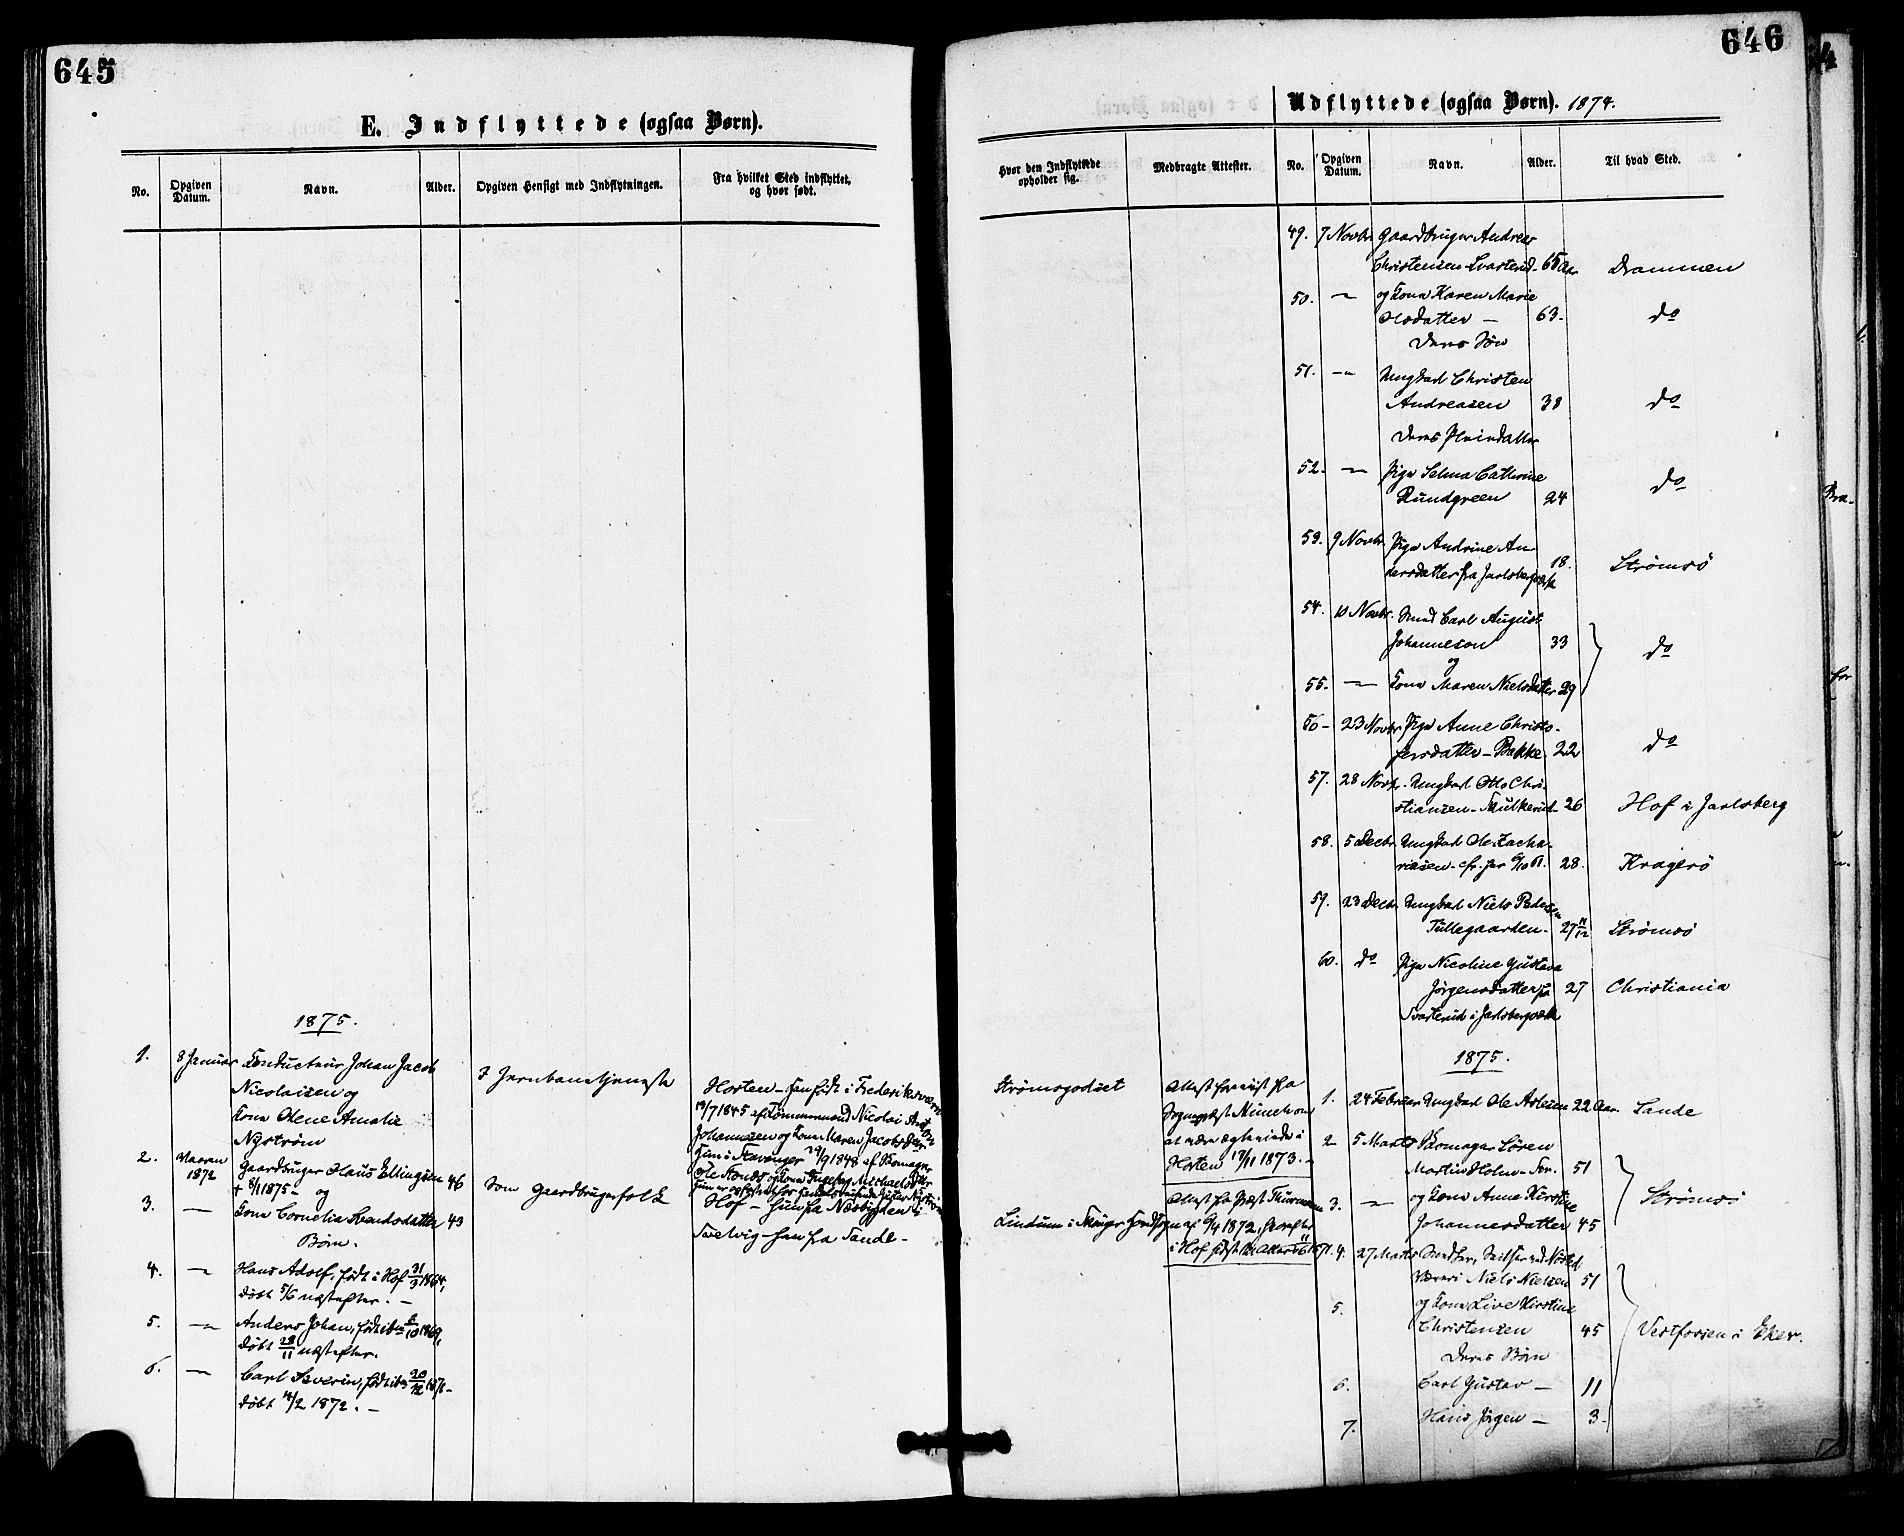 645
E. Indflyttede (ogsaa Børn).
No.
Opgiven Datum.
Navn.
Alder.
Opgiven Hensigt med Indflytningen.
Fra hvilket Sted indflyttet, og hvor født.
1875.
1. 8 Januar Conducteur Johan Jacob
Nicolaisen og
Kone Olene Amalie
Nystrøm
I Jernbanetjeneste
Horten - han født i Frederiksværn
19/7 1845 af Tømmermand Nicolai
Johannesen og Kone Maren Jacobsdtr
hun i Stavanger 29/9 1848 af
2. Vaaren 1872 Gaardbruger Hans Ellingsen 46
+ 8/1 1875 - og
Som Gaardbrugerfolk
3. — Kone Cornelia Svendsdatter 43
Børn.
Hof - hun fra Næsbygden i
Svelvig - han fra Sande -
4. — Hans Adolf, født i Hof 31/3 1864,
døbt 5/6 næstefter. —
5. — Anders Johan, født ibm 5/10 1869,
døbt 28/11 næstefter.
6. — Carl Severin, født ibm 20/12 1871 -
døbt 4/2 1872. —
646
Udflyttede (ogsaa Børn). 1874.
Hvor den Indflyttede opholder sig.
Medbragte Attester.
No.
Opgiven Datum.
Navn.
Alder.
Til hvad Sted.
49. 7 Novbr Gaardbruger Andreas
Christensen Svarterud - 65 Aar Drammen
50. — og Kone Karen Marie
Olsdatter — 63. do
Deres Søn
51. — Ungkarl Christen
Andreasen 38 do
Deres Pleiedatter
52. — Pige Selma Cathrine
Rundgreen 24 do
53. 9 Novbr. Pige Andrine An-
dersdatter fra Jarlsberg 18. Strømsö
54. 10 Novbr. Smed Carl August
Johannesen 33 do
og
55. — Kone Maren Nielsdatter 29
56 - 23 Novbr. Pige Anne Christo-
fersdatter - Bakke. 22 do
57. 28 Novbr. Ungkarl Otto Chri-
stiansen - Mulkerud - 26 Hof i Jarlsberg
58. 5 Decbr. Ungkarl Ole Zacha-
riasen - 28. Kragerö
59. 23 Decbr. Ungkarl Niels Pedersen
Tullegaarden. 27 11/12 Strømsö
60. do Pige Nicoline Gustava
Jörgensdatter fra 27 Christiania
Svarterud i Jarlsberg
1875.
Strømsgodset
Attest fra
Sognepræst Münch om
at være ægteviede i
Horten 12/11 1873. -
1. 24 Februar Ungkarl Ole Axelsen 22 Aar Sande
2 5 Marts Skomager Søren
Martin Holm - 51
Lindum i
Attest fra Præst Thurmann
af 9/4 1872,
3. — og Kone Anne Kirstine
Johannesdatter 45 Strømsö
4. 27 Marts
Niels Nielsen 51
5. og Kone Live Kirstine
Christensen 45 Vestfossen i Eker.
Deres Børn
6. Carl Gustav — 11
7. Hans Jörgen — 3.